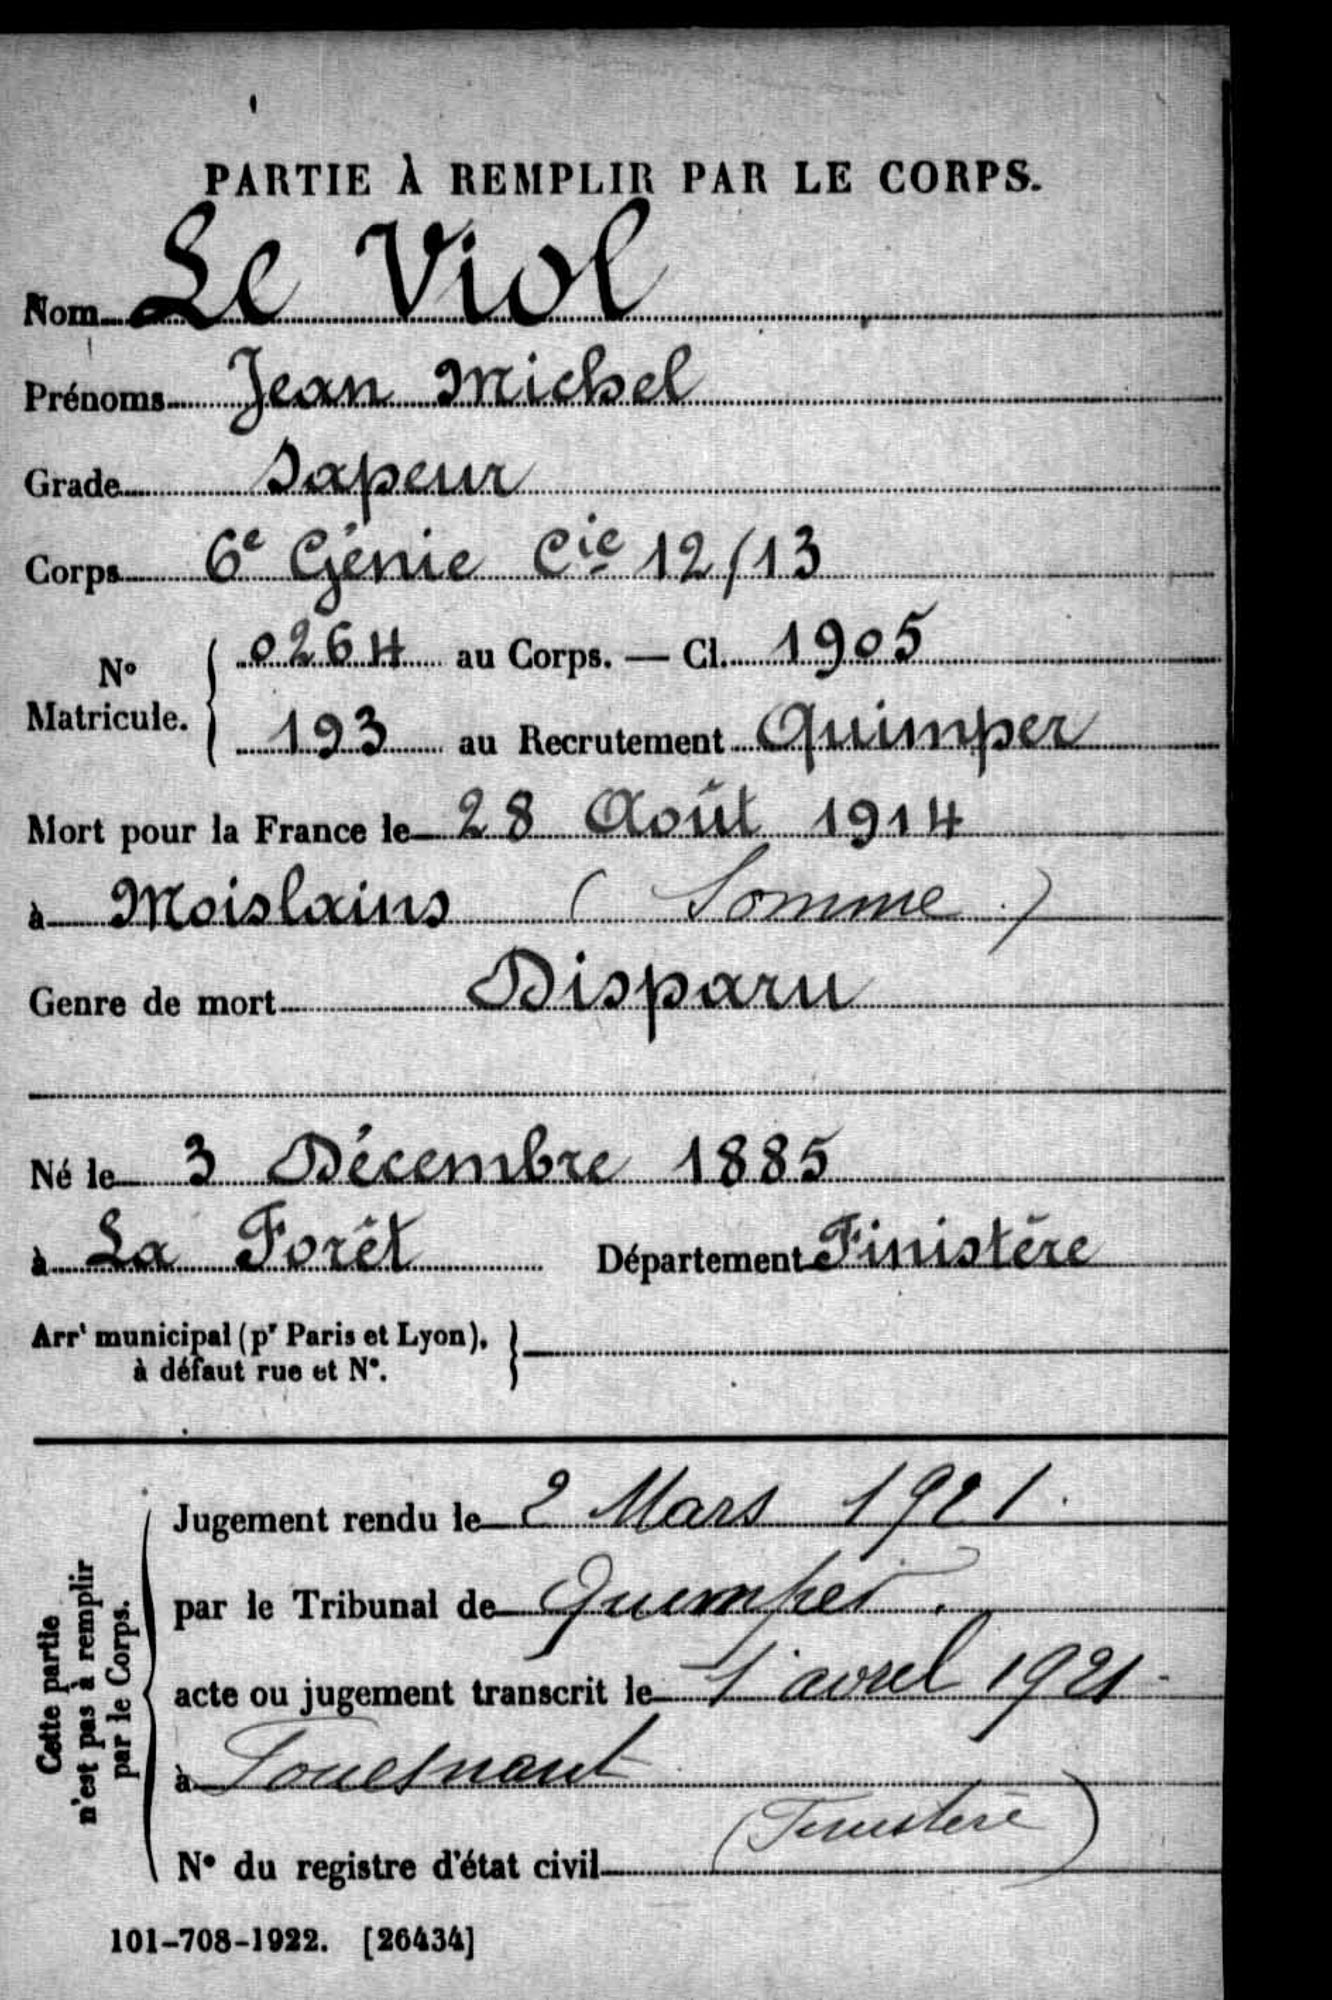 PARTIE À REMPLIR PAR LE CORPS.
Nom Le Viol
Prénoms Jean Michel
Grade Sapeur
Corps 6e Génie Cie 12/13
No Matricule. { 0264 au Corps. — Cl. 1905
193 au Recrutement Quimper
Mort pour la France le 28 Août 1914
à Moislains (Somme)
Genre de mort Disparu
Né le 3 Décembre 1885
à La Forêt Département Finistère
Arrt municipal (pr Paris et Lyon), à défaut rue et No. }
Cette partie n'est pas à remplir par le Corps.
Jugement rendu le 2 Mars 1921.
par le Tribunal de Quimper.
acte ou jugement transcrit le 1 avril 1921
à Fouesnant
(Finistère)
No du registre d'état civil
101-708-1922. [26434]